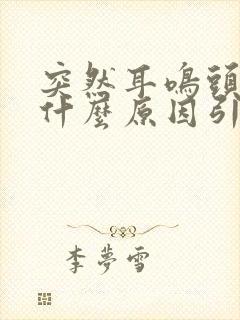 突然耳鳴頭
什麼原因引
李夢雪